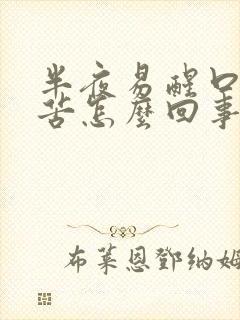 半夜易醒口
苦怎麼回事
布萊恩鄧納姆